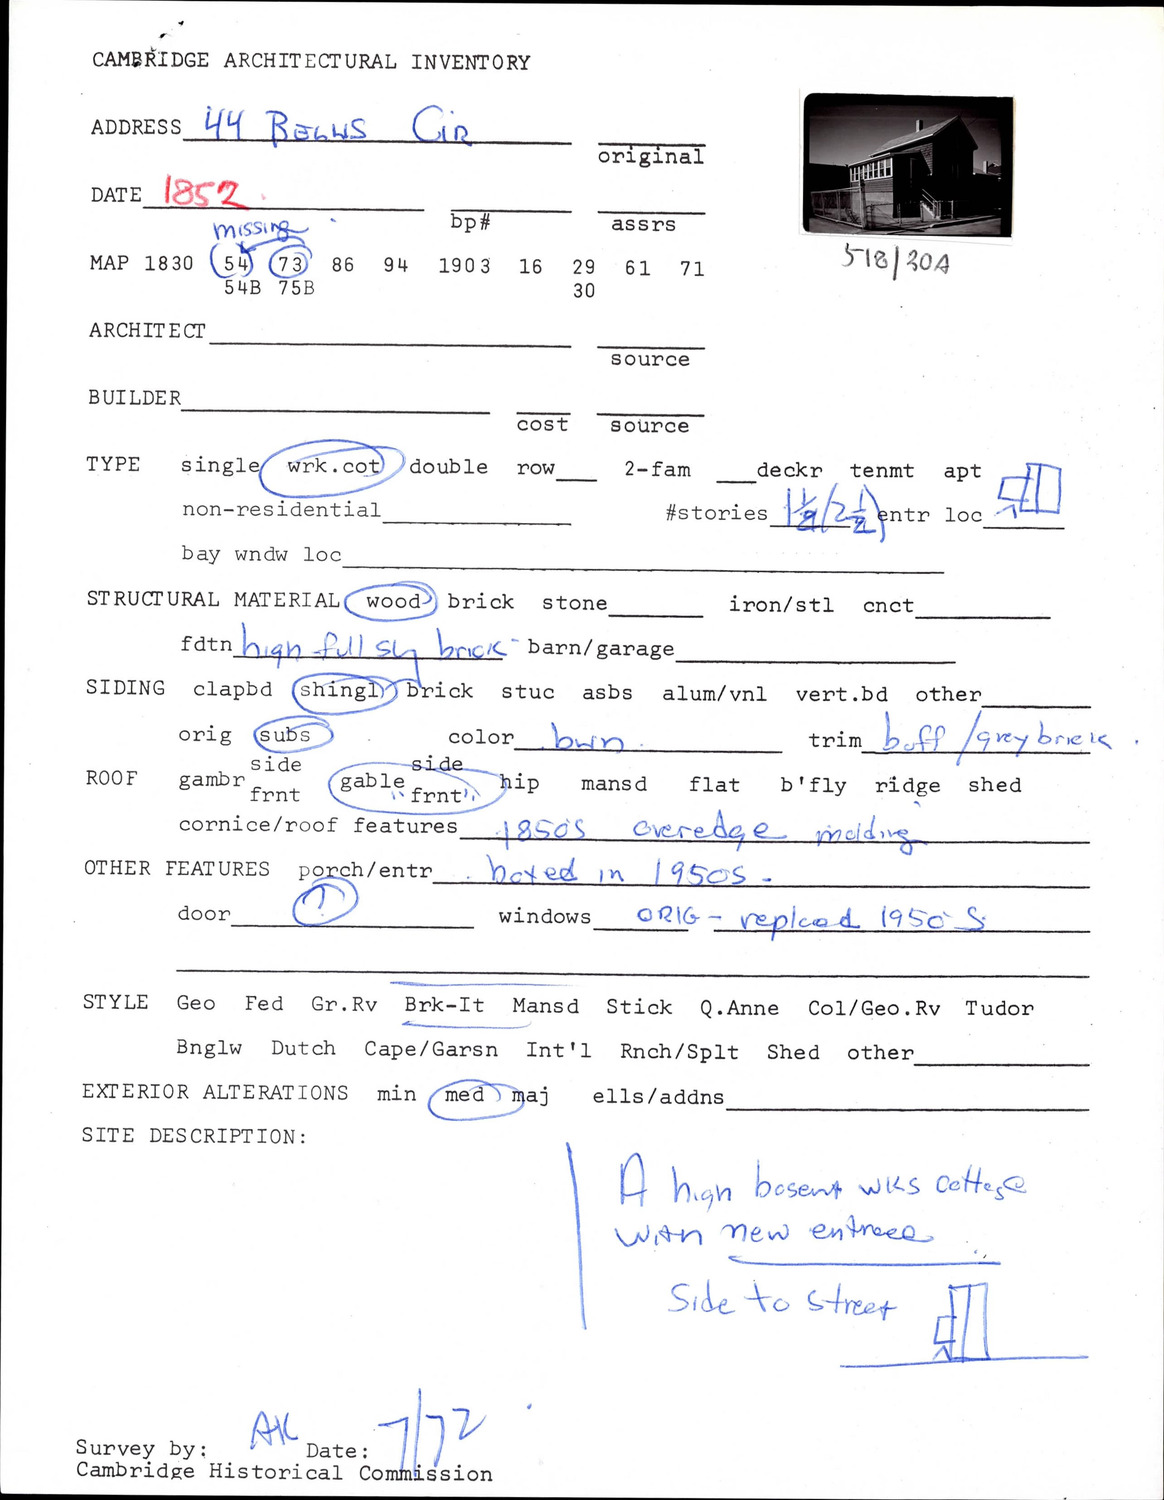 CAMBRIDGE ARCHITECTURAL INVENTORY
ADDRESS 44 BELLIS CIR original
DATE 1852 bp# assrs
missing
MAP 1830 54 73 86 94 1903 16 29 61 71
54B 75B 30
518/20A
ARCHITECT source
BUILDER cost source
TYPE single wrk.cot double row 2-fam deckr tenmt apt
non-residential #stories 1½/(2½) entr loc
bay wndw loc
STRUCTURAL MATERIAL wood brick stone iron/stl cnct
fdtn high full sty brick barn/garage
SIDING clapbd shingl brick stuc asbs alum/vnl vert.bd other
orig subs color bwn. trim buff/grey brick.
ROOF gambr side frnt gable side "frnt" hip mansd flat b'fly ridge shed
cornice/roof features 1850S overedge molding
OTHER FEATURES porch/entr boxed in 1950S.
door ↑ windows ORIG - replced 1950'S
STYLE Geo Fed Gr.Rv Brk-It Mansd Stick Q.Anne Col/Geo.Rv Tudor
Bnglw Dutch Cape/Garsn Int'l Rnch/Splt Shed other
EXTERIOR ALTERATIONS min med maj ells/addns
SITE DESCRIPTION:
A high basemt wks cottage
with new entrnce
Side to street
Survey by: AK Date: 7/72
Cambridge Historical Commission